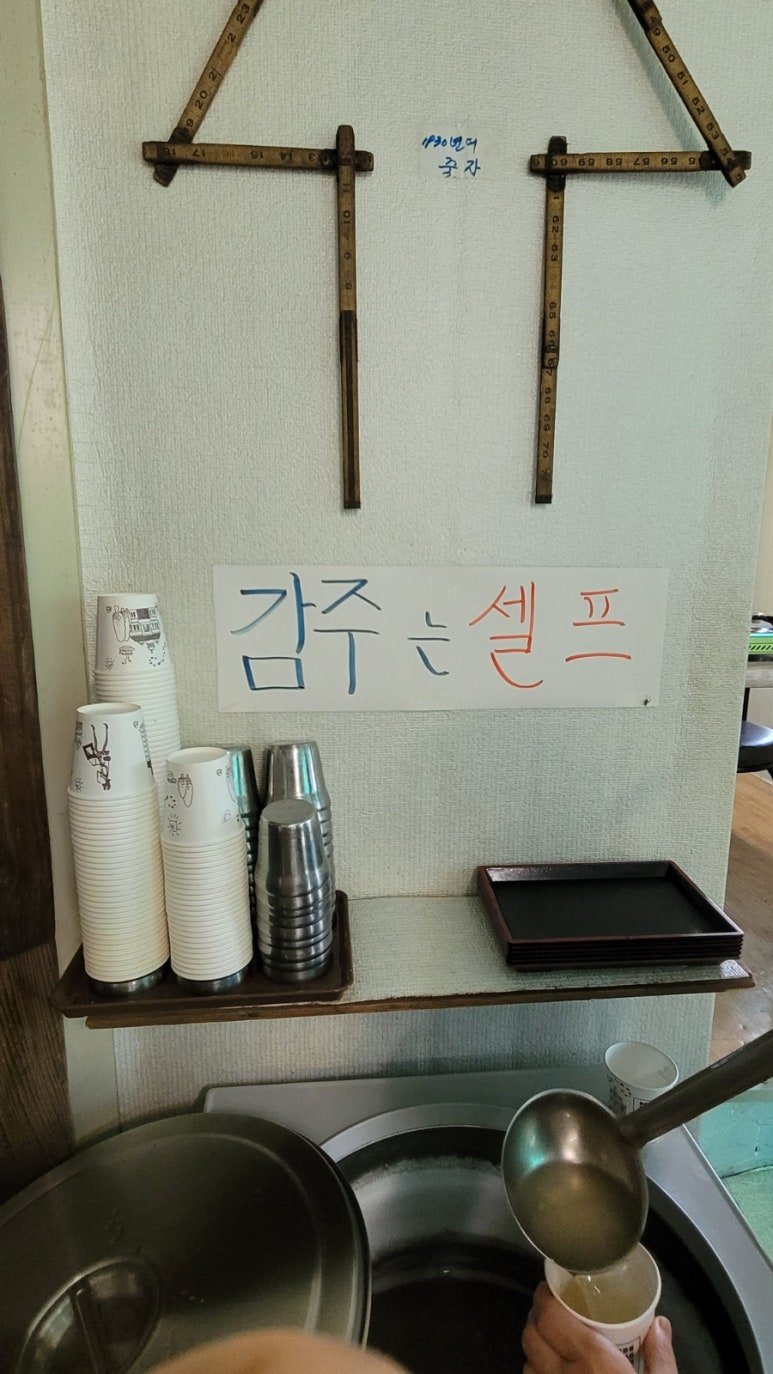 1930년대
줄자
감주는 셀프